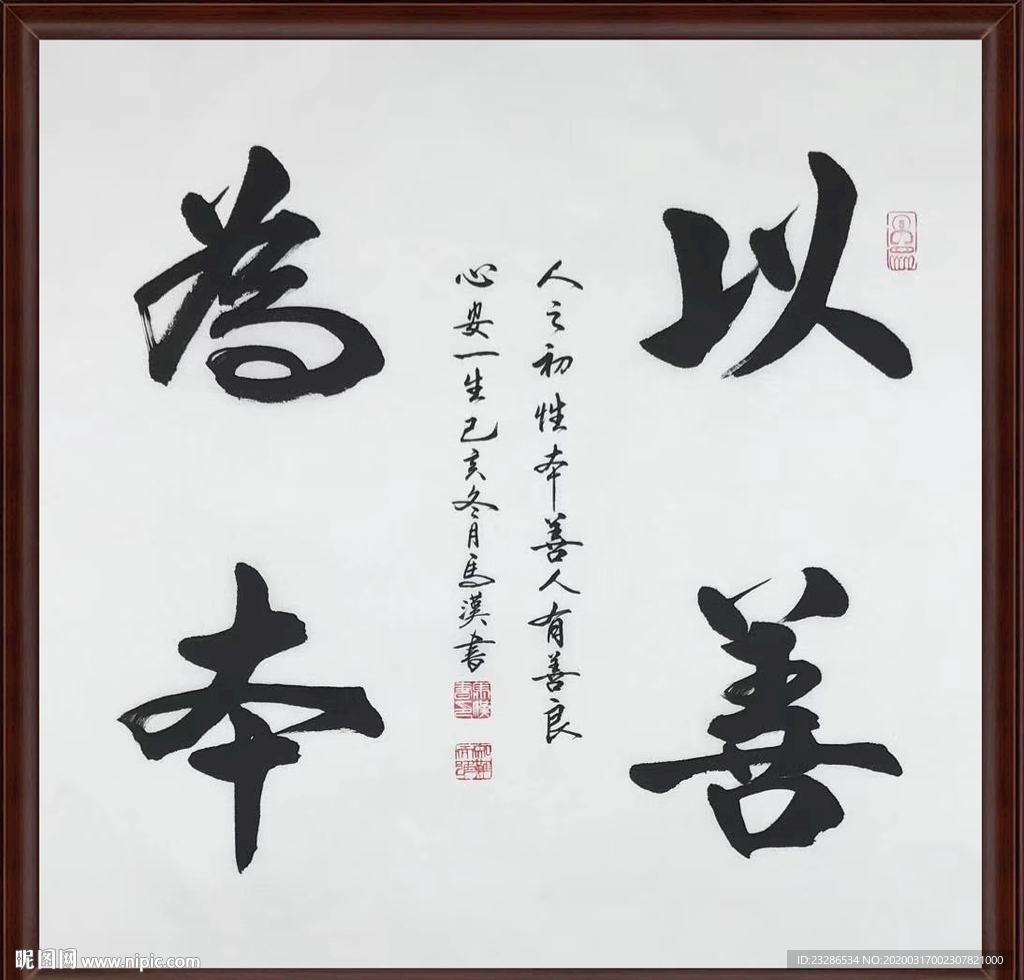 以善
為本
人之初性本善人有善良
心安一生己亥冬月馬漢書
昵图网 www.nipic.com
ID:23286534 NO:20200317002307821000